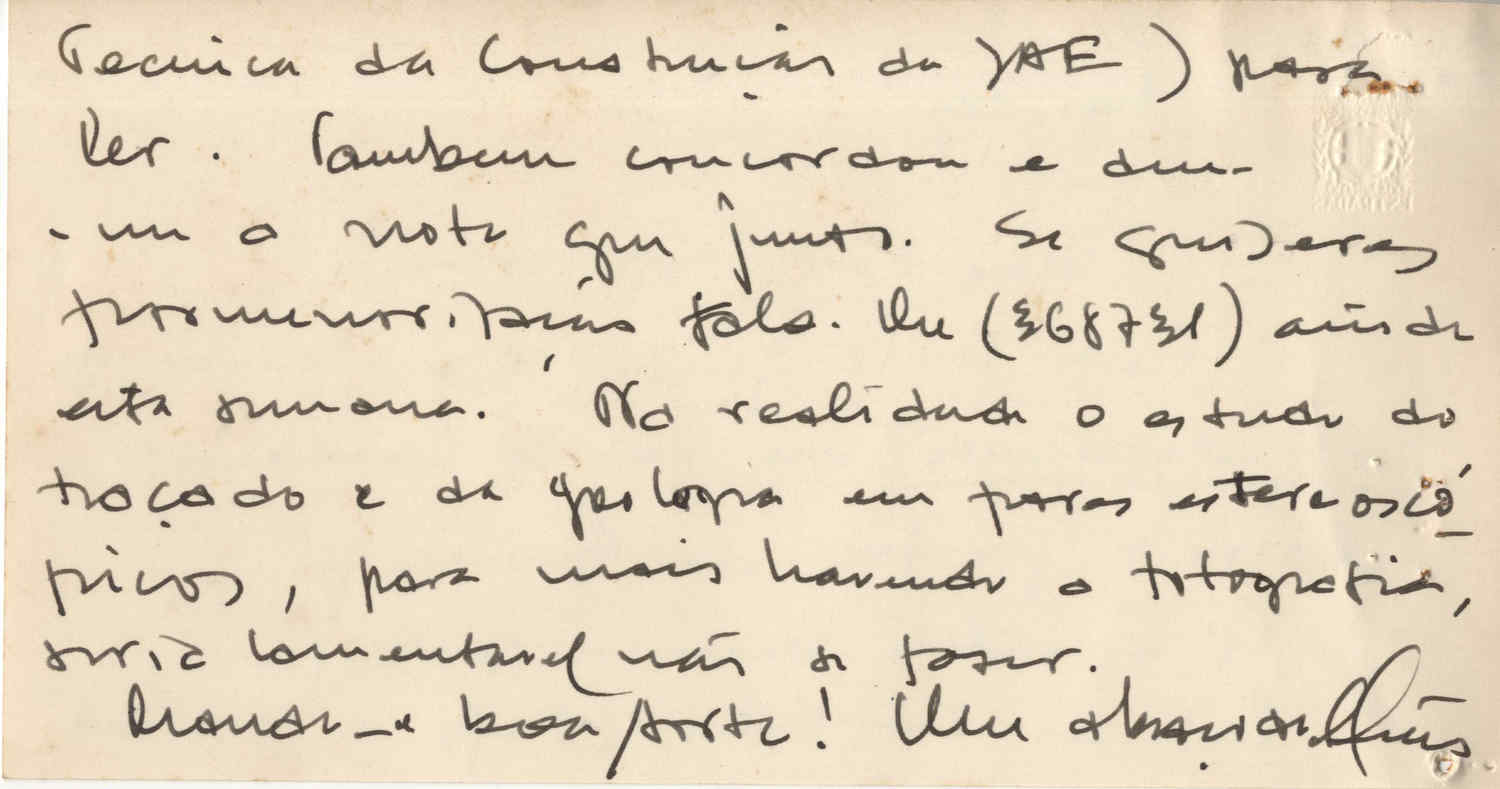 Tecnica da Construção da JAE) para
ver. Tambem concordou e deu-
-me a nota que junto. Se quiseres
pormenorização fala-me (368731) ainda
esta semana. Na realidade o estudo do
traçado e da geologia em pares estereoscó-
picos, para mais havendo a fotografia,
seria lamentavel não se fazer.
Manda-e boa sorte! Um abraço do